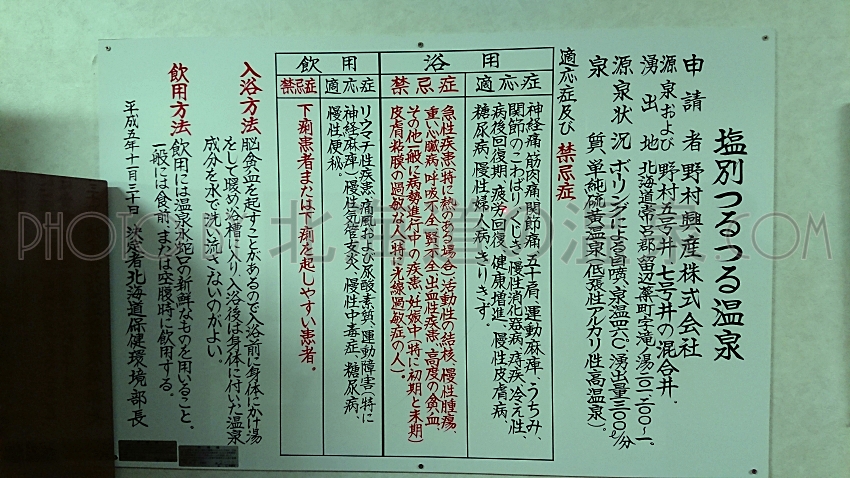 塩別つるつる温泉
申請者 野村興産株式会社
源泉および 野村五号井、七号井の混合井.
湧出地 北海道常呂郡留辺蘂町字滝ノ湯
源泉状況 ボーリングによる自噴、泉温
泉質 単純硫黄温泉(低張性アルカリ性高温泉)。
適応症及び禁忌症
浴用
適応症
神経痛、筋肉痛、関節痛、五十肩、運動麻痺、うちみ、
関節のこわばり、くじき、慢性消化器病、痔疾、冷え性、
病後回復期、疲労回復、健康増進、慢性皮膚病、
糖尿病、慢性婦人病、きりきず。
禁忌症
急性疾患(特に熱のある場合)活動性の結核、慢性腫瘍、
重い心臓病、呼吸不全、腎不全、出血性疾患、高度の貧血、
その他一般に病勢進行中の疾患、妊娠中(特に初期と末期)
皮膚粘膜の過敏な人(特に光線過敏症の人)。
飲用
適応症
リウマチ性疾患、痛風および尿酸素質、運動障害(特に
神経麻痺)慢性気管支炎、慢性中毒症、糖尿病、
慢性便秘。
禁忌症
下痢患者または下痢を起しやすい患者。
入浴方法 脳貧血を起すことがあるので入浴前に身体にかけ湯
をして暖め浴槽に入り、入浴後は身体に付いた温泉
成分を水で洗い流さないのがよい。
飲用方法 飲用には温泉水蛇口の新鮮なものを用いること。
一般には食前、または空腹時に飲用する。
平成五年十一月三十日 決定者 北海道保健環境部長
PHOTO 北海道の温泉.COM